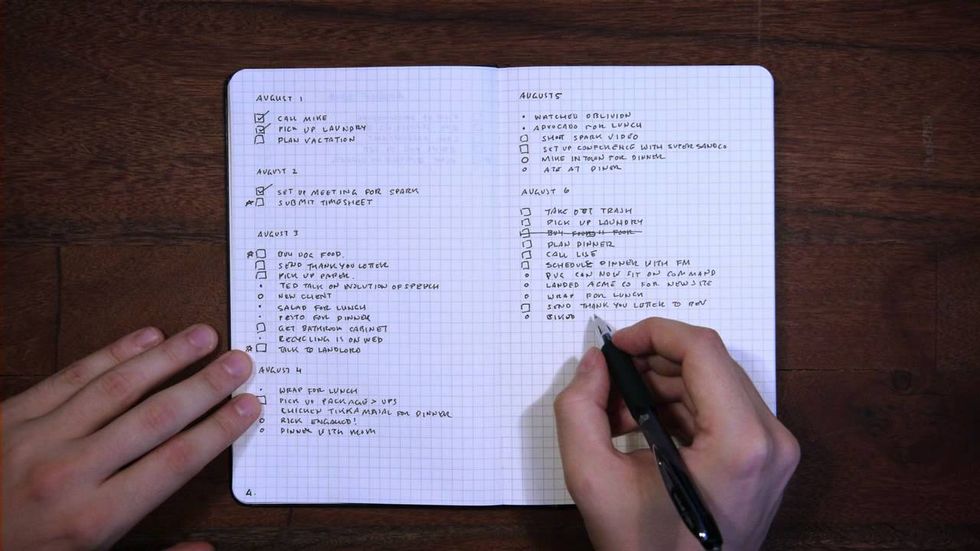 AUGUST 1
CALL MIKE
PICK UP LAUNDRY
PLAN VACTATION
AUGUST 2
SET UP MEETING FOR SPARK
SUBMIT TIMESHEET
AUGUST 3
BUY DOG FOOD.
SEND THANK YOU LETTER
PICK UP PAPER.
TED TALK ON EVOLUTION OF SPEECH
NEW CLIENT
SALAD FOR LUNCH
PESTO FOR DINNER
GET BATHROOM CABINET
RECYCLING IS ON WED
TALK TO LANDLORD
AUGUST 4
WRAP FOR LUNCH
PICK UP PACKAGE > UPS
CHICKEN TIKKA FOR DINNER
RICK ENGAGED!
DINNER WITH MOM
4.
AUGUST 5
WATCHED OBLIVION
ADVOCADO FOR LUNCH
SHOOT SPARK VIDEO
SET UP CONFERENCE WITH SUPERSANDCO
MIKE IN TOWN FOR DINNER
ATE AT DINER
AUGUST 6
TAKE OUT TRASH
PICK UP LAUNDRY
BUY
PLAN DINNER
CALL LISE
SCHEDULE DINNER WITH FM
PUG CAN NOW SIT ON COMMAND
LANDED ACME CO FOR NEW SITE
WRAP FOR LUNCH
SEND THANK YOU LETTER TO BEV